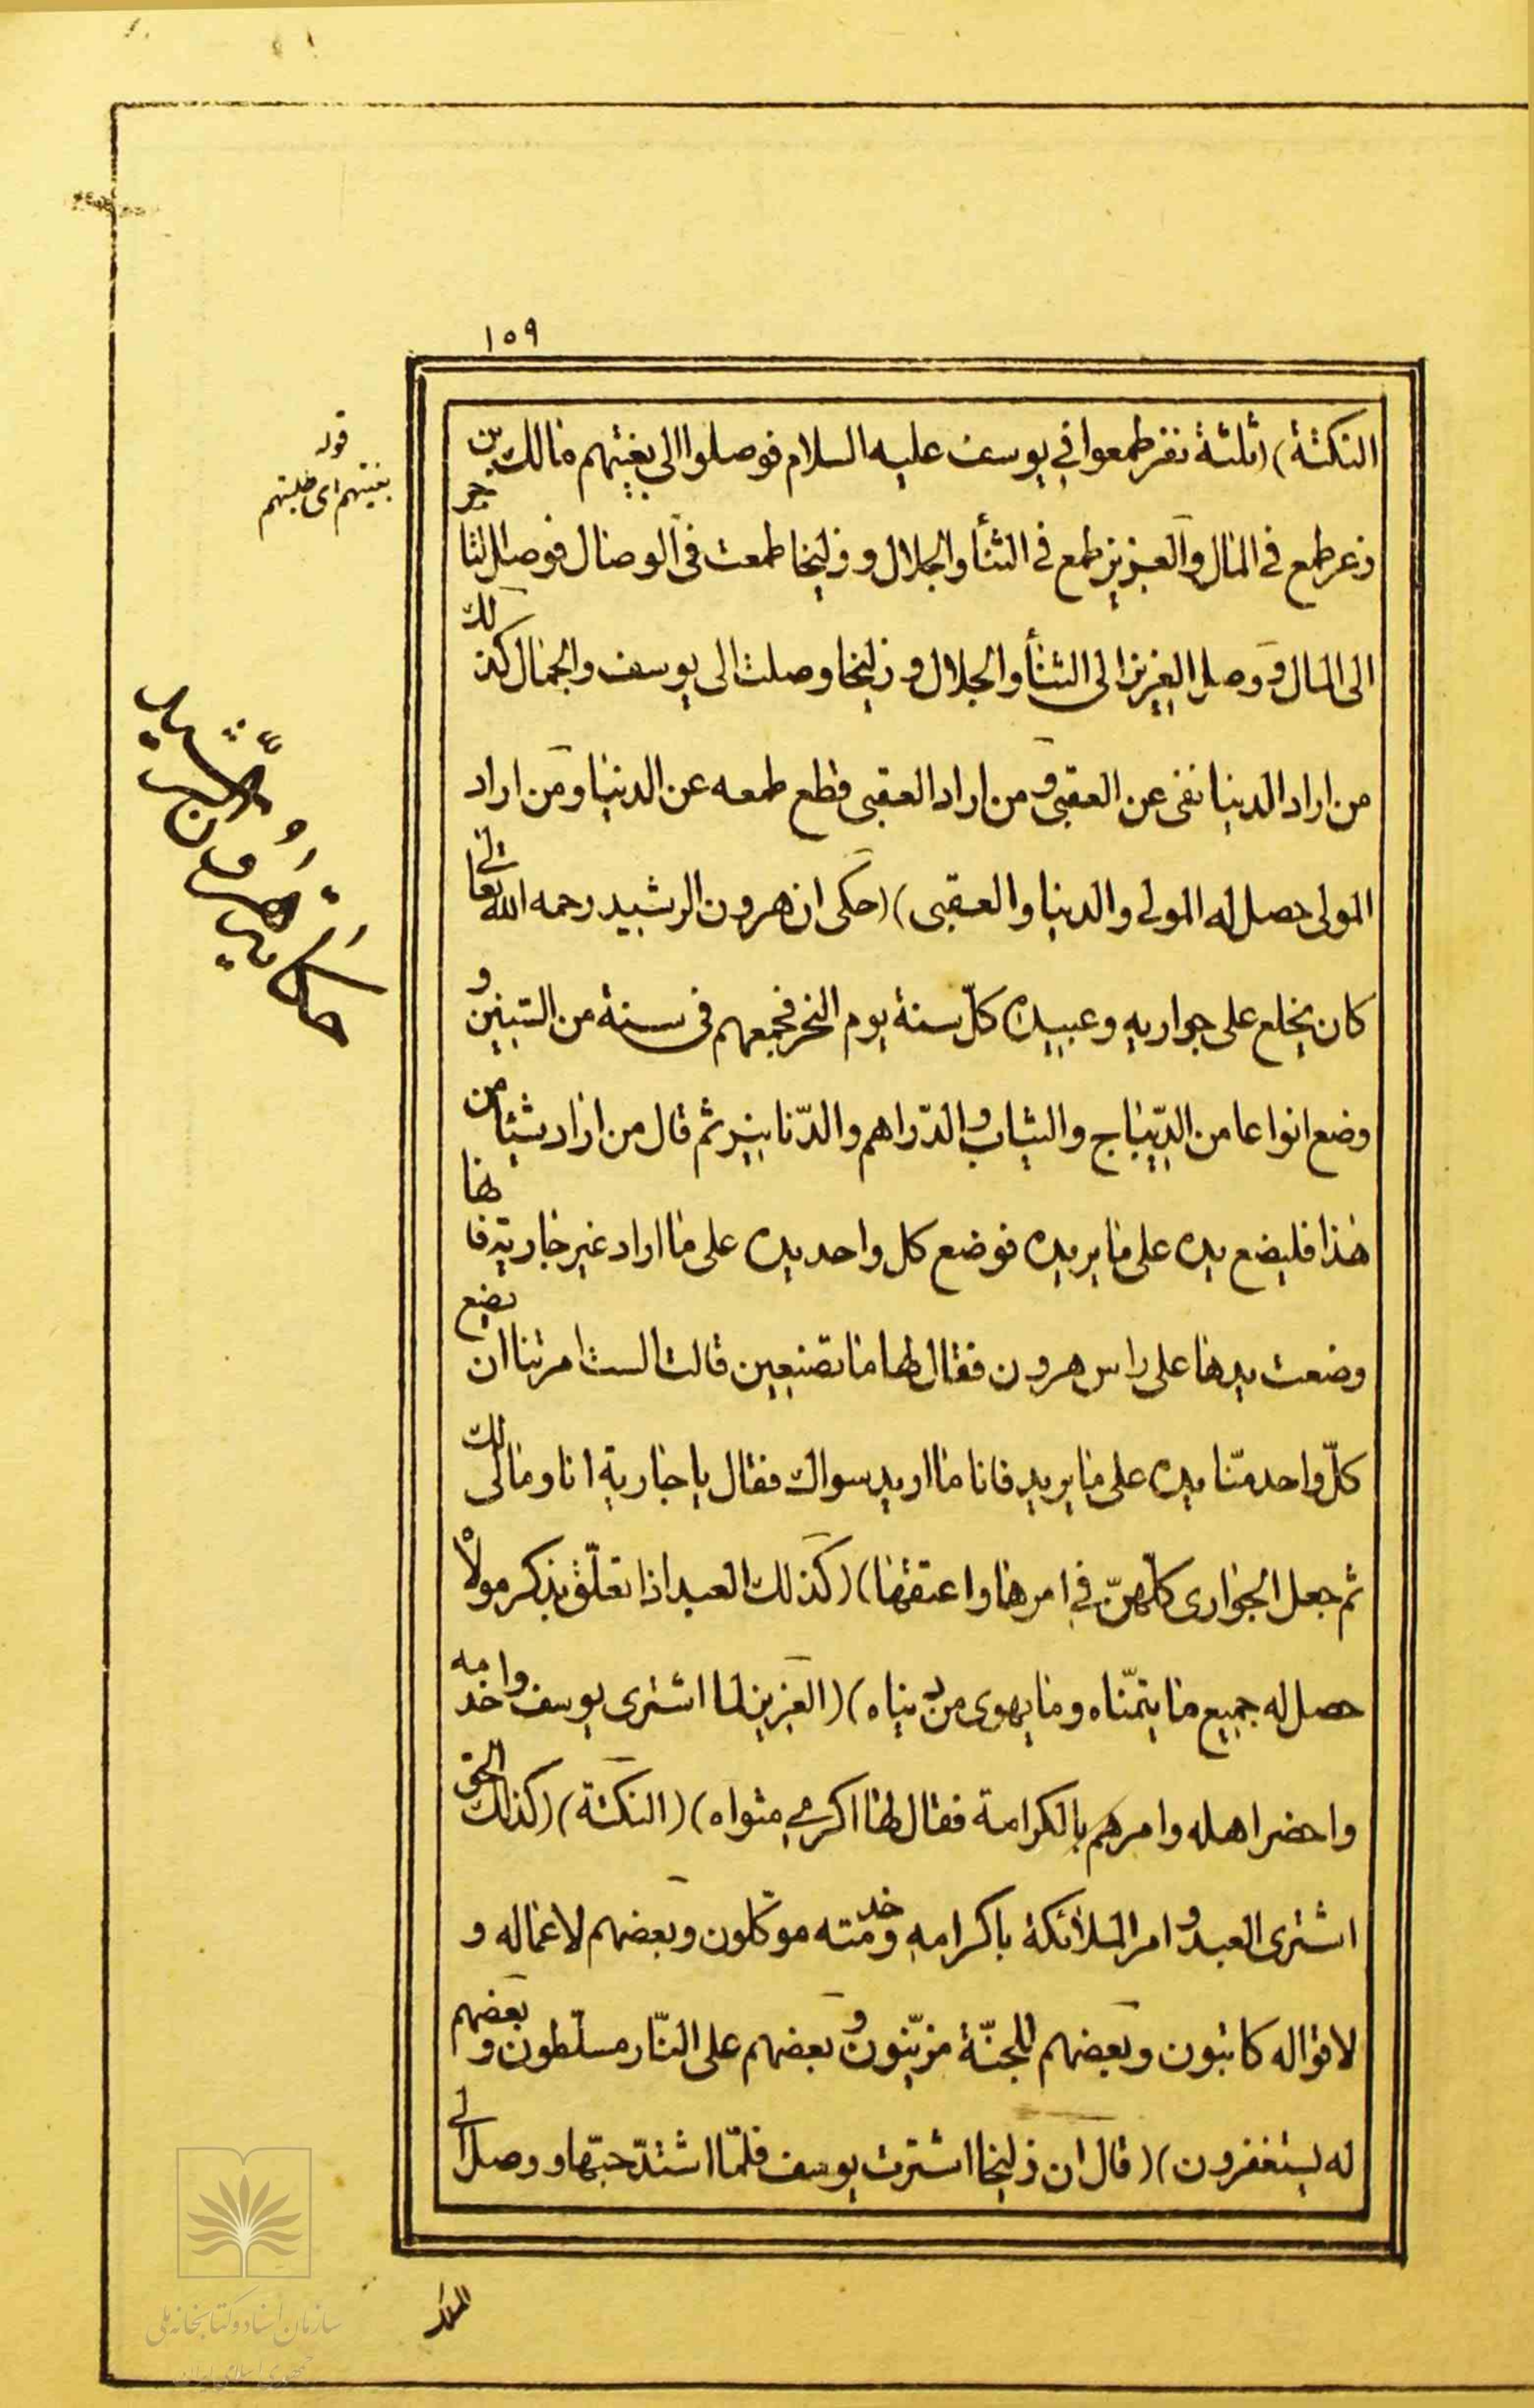 ١٥٩
النكتة) (ثلثة نفر طمعوا في يوسف عليه السلام فوصلوا الى بغيتهم مالك بن
ذعر طمع في المال والعزيز طمع في الثنأ والجلال و زليخا طمعت في الوصال فوصل التاجر
الى المال و وصل العزيز الى الثنأ والجلال و زليخا وصلت الى يوسف والجمال كذلك
من اراد الدنيا نفى عن العقبى و من اراد العقبى قطع طمعه عن الدنيا و من اراد
المولى حصل له المولى والدنيا والعقبى) (حكى ان هرون الرشيد رحمه الله تعالى
كان يخلع على جواريه وعبيده كلّ سنة يوم النحر فجمعهم فى سنة من السّنين و
وضع انواعا من الدّيباج والثياب والدّراهم والدّنانير ثم قال من اراد شيئا من
هذا فليضع يده على ما يريده فوضع كل واحد يده على ما اراد غير جارية فانها
وضعت يدها على راس هرون فقال لها ما تصنعين قالت الست امرتنا ان يضع
كلّ واحد منّا يده على ما يريد فانا ما اريد سواك فقال يا جارية انا ومالى لك
ثم جعل الجوارى كلّهنّ في امرها واعتقها) (كذلك العبد اذا تعلّق بذكر مولاه
حصل له جميع ما يتمنّاه وما يهوى من دنياه) (العزيز لما اشترى يوسف واخدمه
واحضر اهله وامرهم بالكرامة فقال لها اكرمي مثواه) (النكتة) (كذلك الحق
اشترى العبد و امر الملائكة باكرامه وخدمته موكّلون وبعضهم لاعماله و
لاقواله كاتبون وبعضهم للجنّة مزيّنون و بعضهم على النّار مسلّطون و بعضهم
له يستغفرون) (قال ان زليخا اشترت يوسف فلمّا اشتدّ حبّها و وصل الى
قوله
بغيتهم اى طلبتهم
حكاية هرون الرّشيد
سازمان اسناد و کتابخانه ملی
جمهوری اسلامی ایران